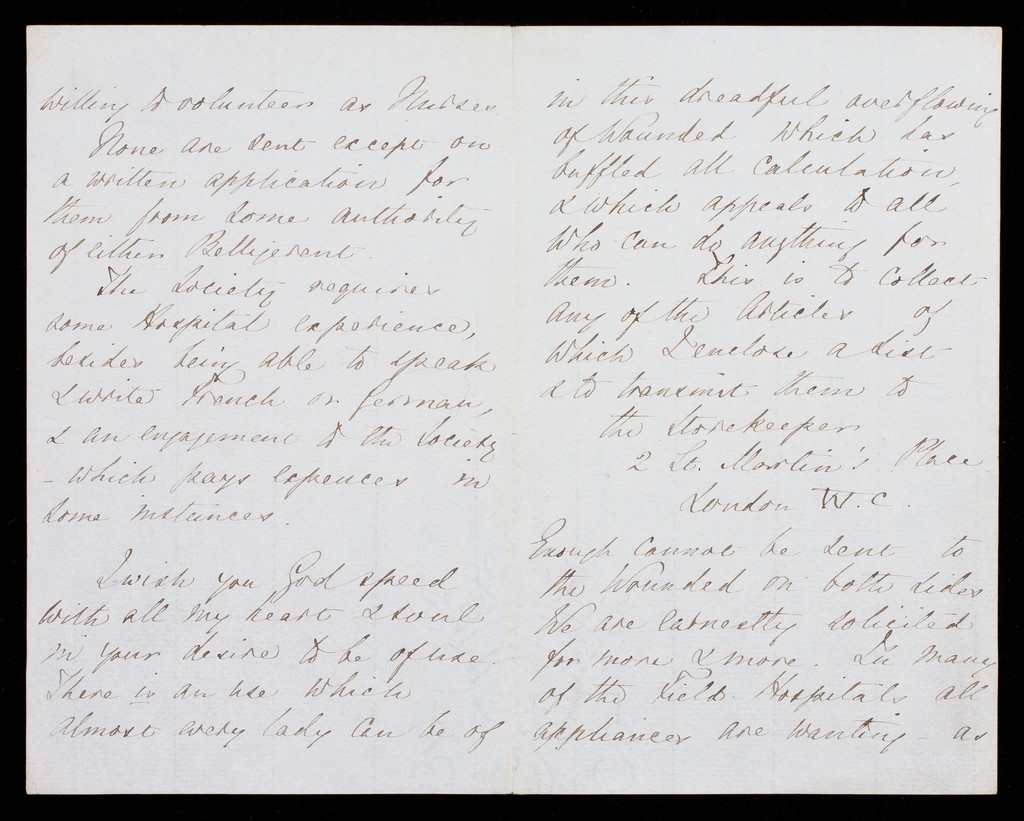 willing to volunteer as Nurses.
None are sent except on
a written application for
them from some authority
of either Belligerent.
The Society requires
some Hospital experience,
besides being able to speak
& write French or German,
& an engagement to the Society
- which pays expences in
some instances.
I wish you God speed
with all my heart & soul
in your desire to be of use.
There is an use which
almost every lady can be of
in this dreadful overflowing
of Wounded which has
baffled all calculation,
& which appeals to all
who can do anything for
them. This is to collect
any of the Articles of
which I enclose a List
& to transmit them to
the Storekeeper
2 St. Martin's Place
London W.C.
Enough cannot be sent to
the Wounded on both sides
We are earnestly solicited
for more & more. In many
of the Field Hospitals all
appliances are wanting - as